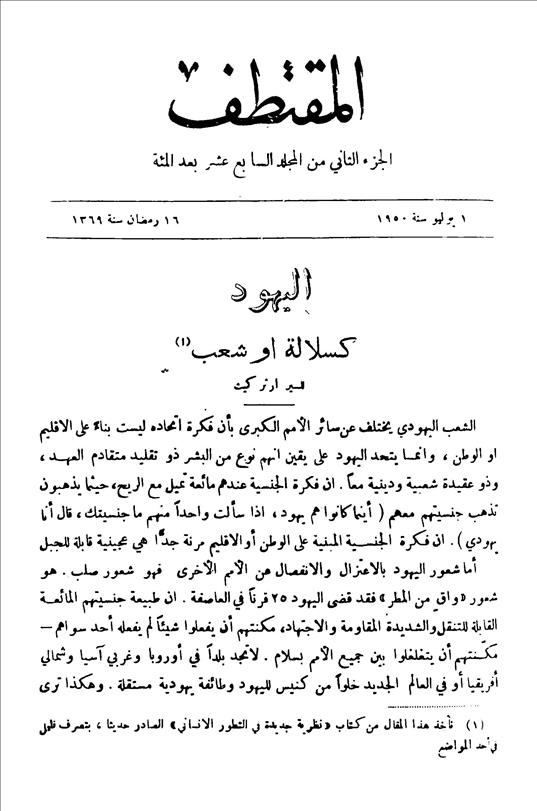 المقتطف
الجزء الثاني من المجلد السابع عشر بعد المئة
١ يوليو سنة ١٩٥٠
١٦ رمضان سنة ١٣٦٩
اليهود
كسلالة او شعب (١)
للسير ارثر كيث
الشعب اليهودي يختلف عن سائر الأمم الكبرى بأن فكرة اتحاده ليست بناءً على الاقليم
او الوطن ، وانما يتحد اليهود على يقين انهم نوع من البشر ذو تقليد متقادم العهد ،
وذو عقيدة شعبية ودينية معاً . ان فكرة الجنسية عندهم مائعة تميل مع الريح ، حيثما يذهبون
تذهب جنسيتهم معهم ( أينما كانوا هم يهود ، اذا سألت واحداً منهم ما جنسيتك ، قال أنا
يهودي ) . ان فكرة الجنسية المبنية على الوطن أو الاقليم مرنة جدًّا هي عجينية قابلة للجبل
أما شعور اليهود بالاعتزال والانفصال عن الأمم الأخرى فهو شعور صلب . هو
شعور «واق من المطر» فقد قضى اليهود ٢٥ قرناً في العاصفة . ان طبيعة جنسيتهم المائعة
القابلة للتنقل والشديدة المقاومة والاجتهاد ، مكنتهم أن يفعلوا شيئاً لم يفعله أحد سواهم —
مكّنتهم أن يتغلغلوا بين جميع الأمم بسلام . لا تجد بلداً في أوروبا وغربي آسيا وشمالي
أفريقيا أو في العالم الجديد خلواً من كنيس لليهود وطائفة يهودية مستقلة . وهكذا ترى
(١) نأخذ هذا المقال من كتاب «نظرية جديدة في التطور الانساني» الصادر حديثا ، بتصرف قليل
في أحد المواضع